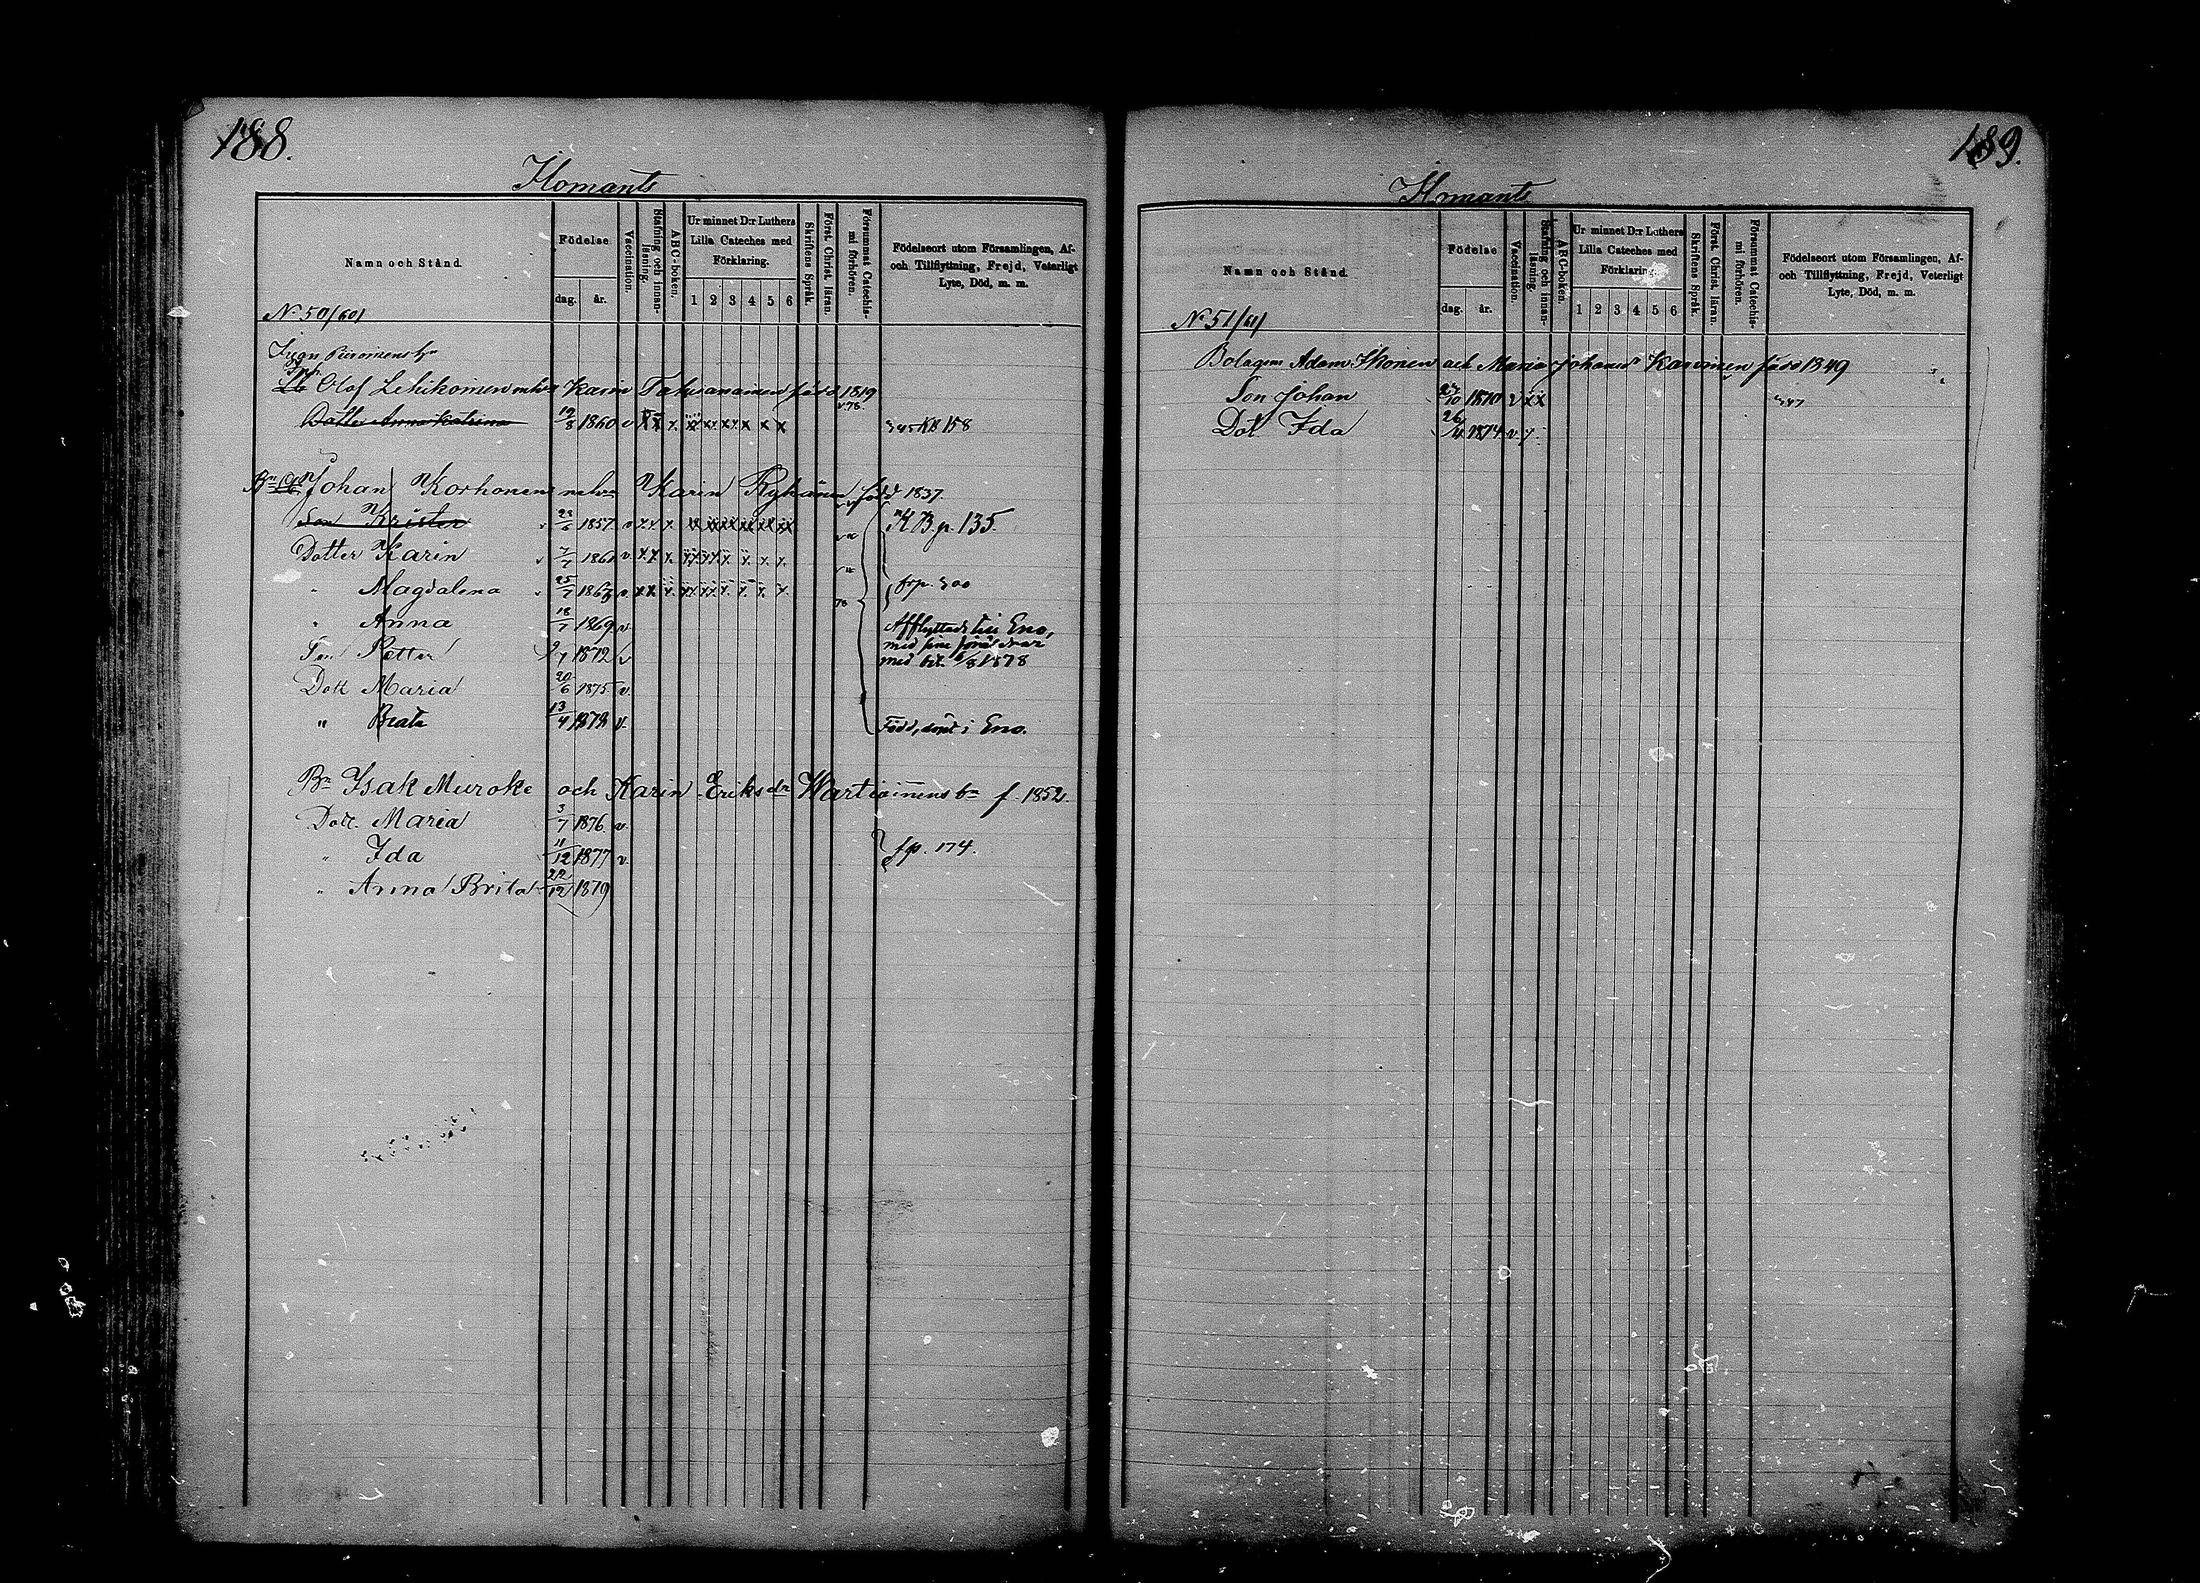 188.
Ilomants
Namn och Stånd.
Födelse
dag. år.
Vaccination.
Stafning och innan-
läsning.
ABC-boken.
Ur minnet D:r Luthers
Lilla Cateches med
Förklaring.
1 2 3 4 5 6
Skriftens Språk.
Först. Christ. läran.
Försummat Catechis-
mi förhören.
Födelseort utom Församlingen, Af-
och Tillflyttning, Frejd, Veterligt
Lyte, Död, m. m.
No 50/60/
Olof Lehikoinen Karin född 1819
Dotter Anna Katrina 19/8 1860 v KB 158
Johan Korhonen Karin född 1837.
Son Krister 1857 v KB p. 135.
Dotter Karin 1861 v
" Magdalena 25/7 186 v. frp. 300
" Anna 18/7 1869 v.
Afflyttade till Eno,
med sine föräldrar
med bet. 1878
Son Petter 1872 v
Dott Maria 20/6 1875 v.
" Beata 13/4 1878 v. Född, döpt i Eno.
Bn Isak Muroke och Karin Eriksdr f. 1852.
Dott. Maria 3/7 1876 v.
" Ida 11/12 1877 v. fp. 174.
" Anna Brita 22/12 1879
189.
Ilomants
Namn och Stånd.
Födelse
dag. år.
Vaccination.
Stafning och innan-
läsning.
ABC-boken.
Ur minnet D:r Luthers
Lilla Cateches med
Förklaring.
1 2 3 4 5 6
Skriftens Språk.
Först. Christ. läran.
Försummat Catechis-
mi förhören.
Födelseort utom Församlingen, Af-
och Tillflyttning, Frejd, Veterligt
Lyte, Död, m. m.
No 51/61/
Adam och Maria född 1849
Son Johan 1870 v x x
Dot. Ida 1874 v.